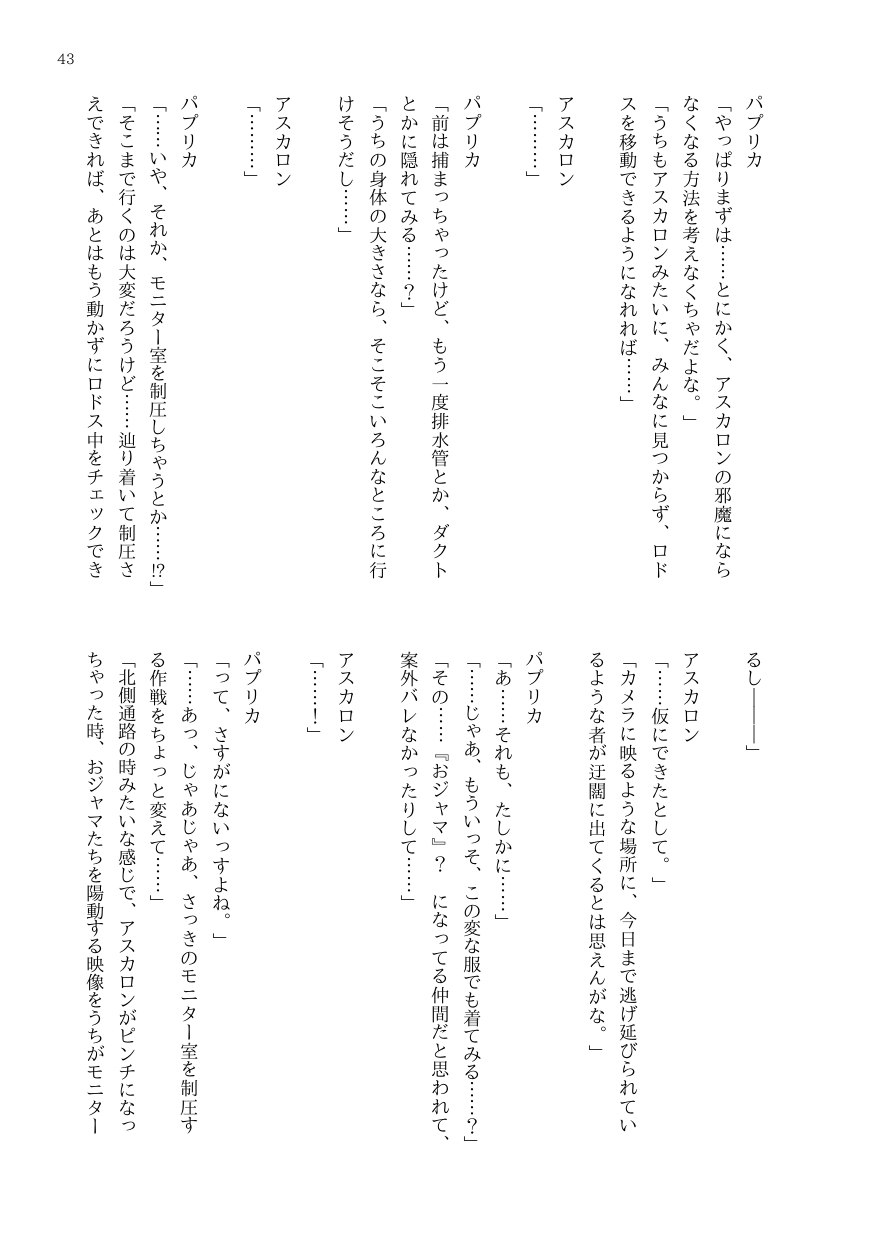 43
パプリカ
「やっぱりまずは……とにかく、アスカロンの邪魔になら
なくなる方法を考えなくちゃだよな。」
「うちもアスカロンみたいに、みんなに見つからず、ロド
スを移動できるようになれれば……」
アスカロン
「………」
パプリカ
「前は捕まっちゃったけど、もう一度排水管とか、ダクト
とかに隠れてみる……？」
「うちの身体の大きさなら、そこそこいろんなところに行
けそうだし……」
アスカロン
「………」
パプリカ
「……いや、それか、モニター室を制圧しちゃうとか……!?」
「そこまで行くのは大変だろうけど……辿り着いて制圧さ
えできれば、あとはもう動かずにロドス中をチェックでき
るし―――」
アスカロン
「……仮にできたとして。」
「カメラに映るような場所に、今日まで逃げ延びられてい
るような者が迂闊に出てくるとは思えんがな。」
パプリカ
「あ……それも、たしかに……」
「……じゃあ、もういっそ、この変な服でも着てみる……？」
「その……『おジャマ』？　になってる仲間だと思われて、
案外バレなかったりして……」
アスカロン
「……！」
パプリカ
「って、さすがにないっすよね。」
「……あっ、じゃあじゃあ、さっきのモニター室を制圧す
る作戦をちょっと変えて……」
「北側通路の時みたいな感じで、アスカロンがピンチになっ
ちゃった時、おジャマたちを陽動する映像をうちがモニター